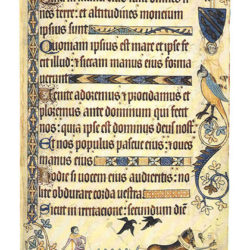 nes terre: et altitudines montium
ipsius sunt
Quoniam ipsius est mare et ipse fe
cit illud: et siccam manus eius forma
uerunt
Uenite adoremus et procidamus et
ploremus ante dominum qui fecit
nos: quia ipse est dominus deus nost
Et nos populus pascue eius: et oues
manus eius
Hodie si uocem eius audieritis: no
lite obdurare corda uestra
Sicut in irritacione: secundum diem